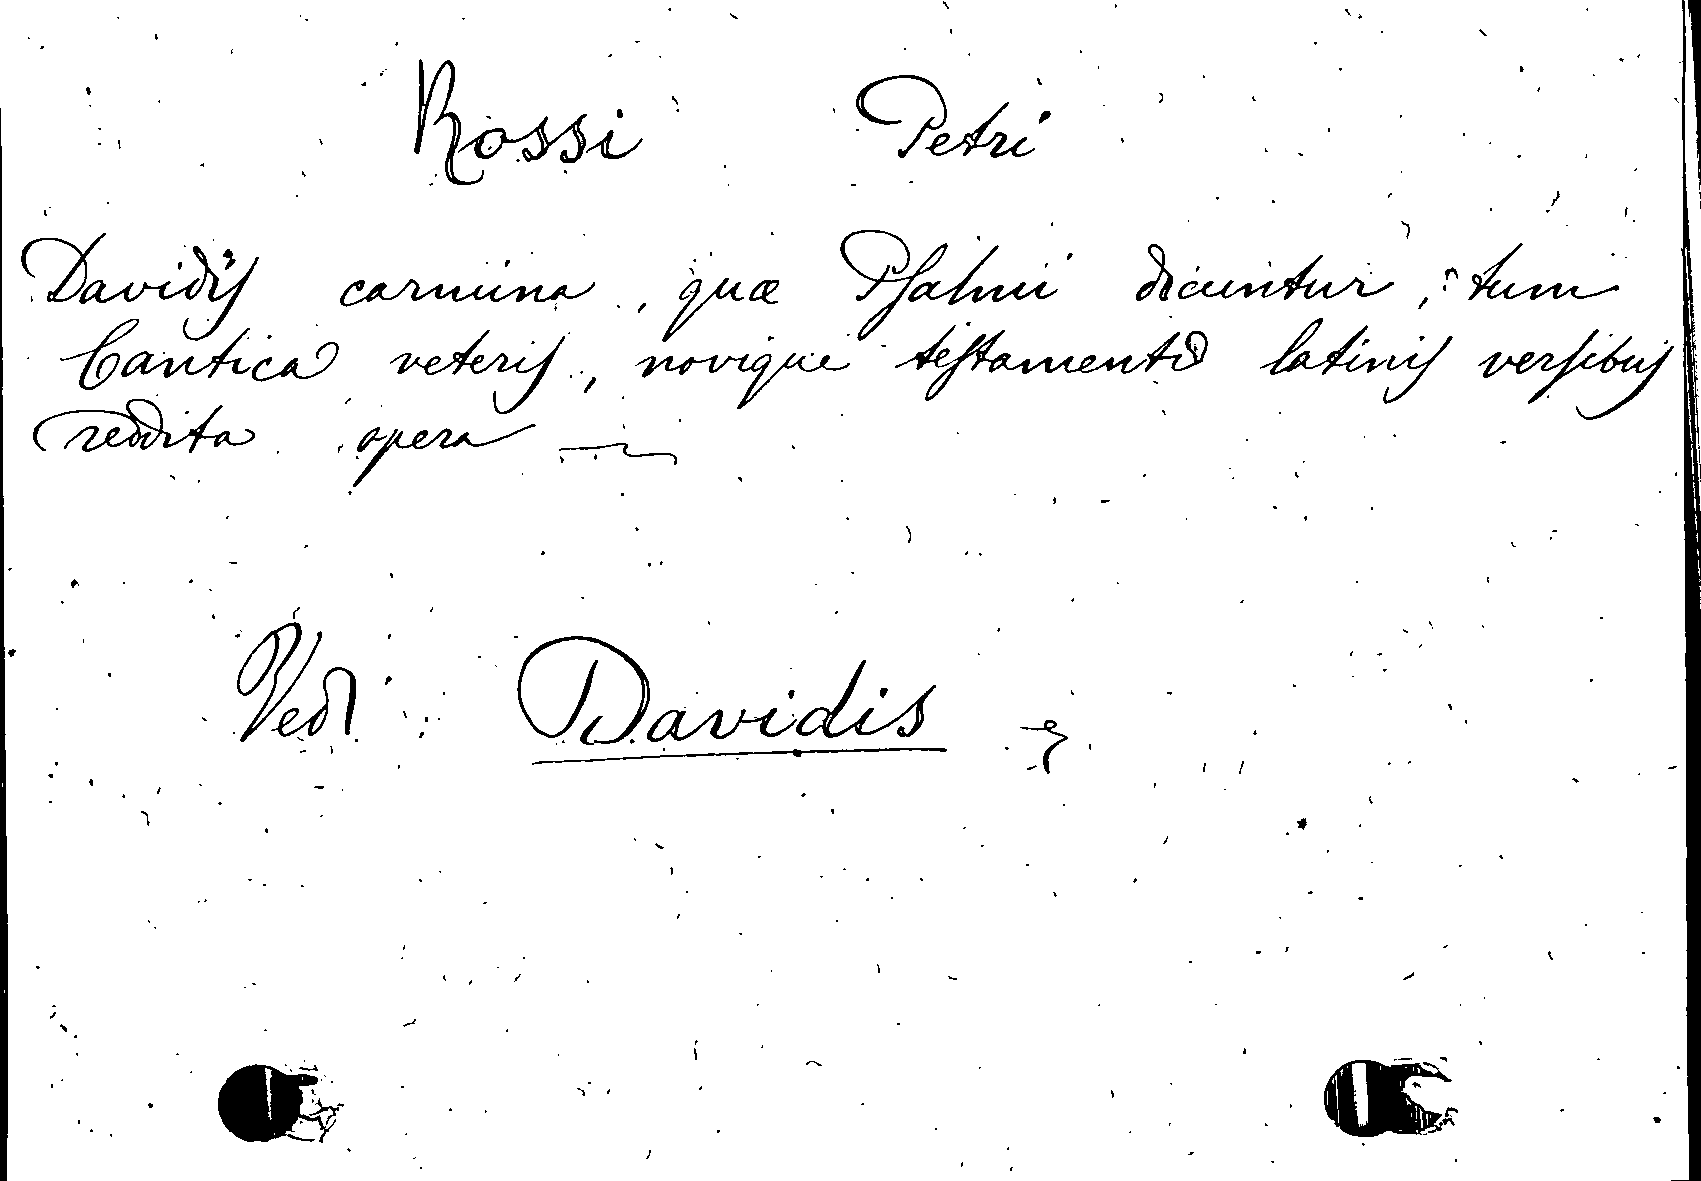 Rossi Petri
Davidis carmina, quæ Psalmi dicuntur, tum
Cantica veteris, novique testamenti latinis versibus
reddita opera
Vedi Davidis